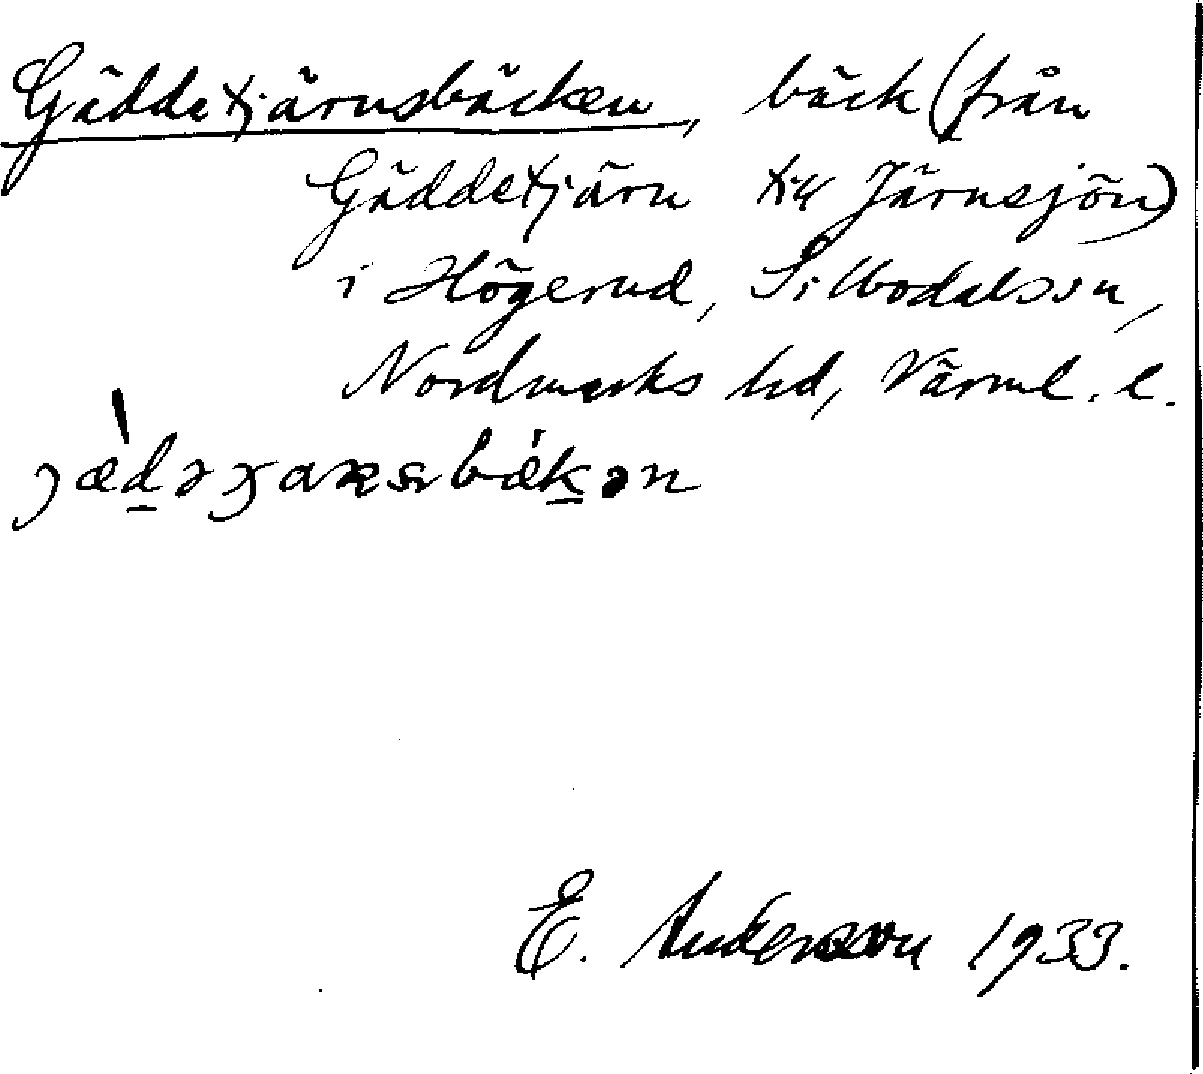 Gäddetjärnsbäcken, bäck (från
Gäddetjärn till Järnsjön)
i Högerud, Silbodals sn,
Nordmarks hd, Värml. l.
E. Andersson 1933.